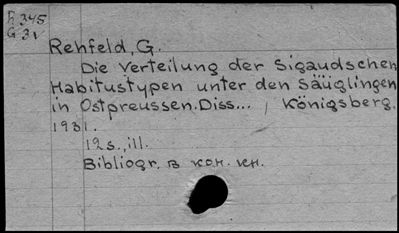 h 345
G 31
Rehfeld, G.
Die Verteilung der Sigaudschen
Habitustypen unter den Säuglingen
in Ostpreussen. Diss..., Königsberg.
1931.
12 s., ill.
Bibliogr. в кон. кн.